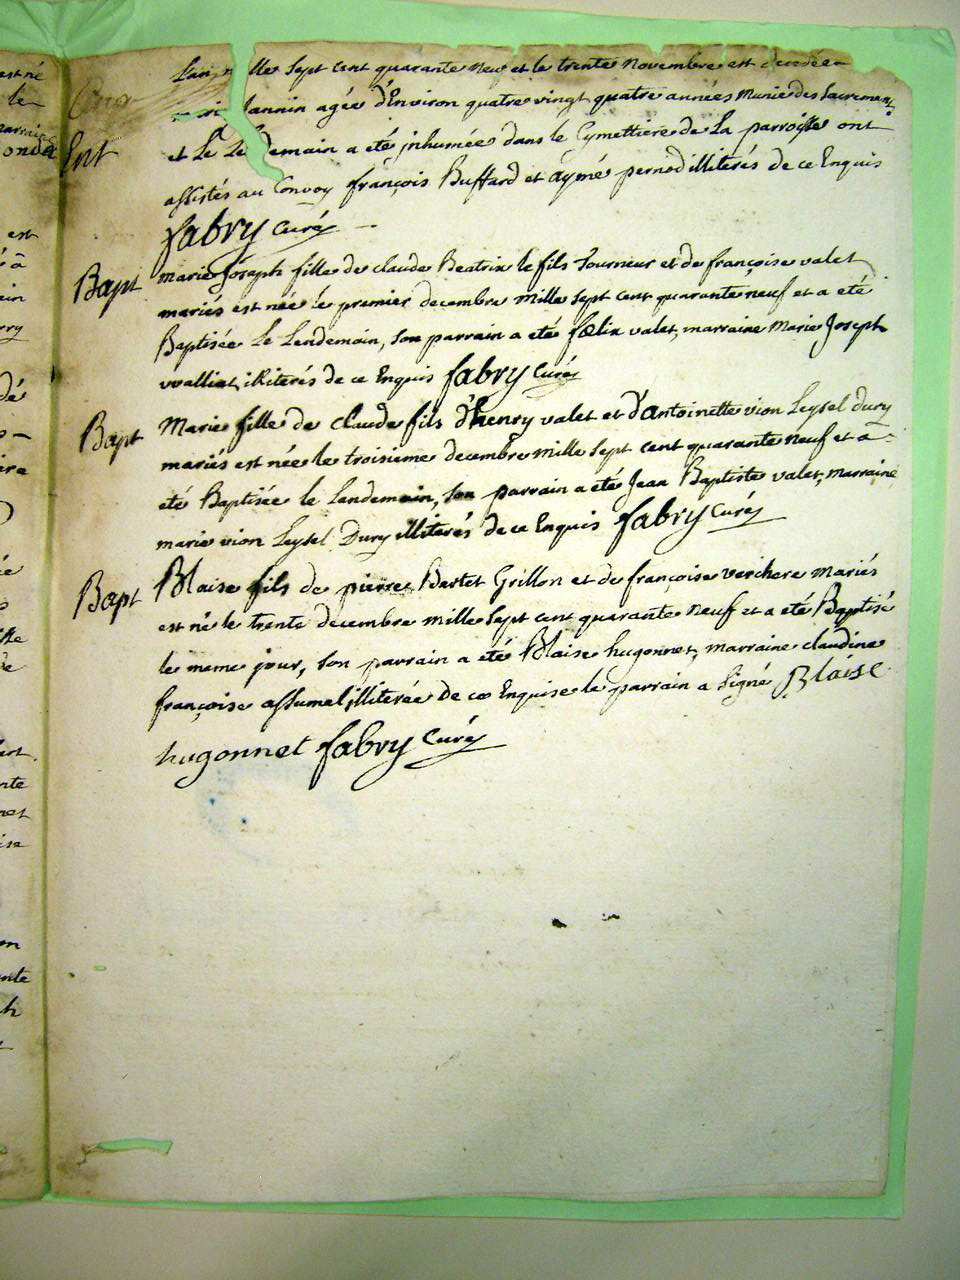 L'an mille sept cent quarante neuf et le trente Novembre est decedée
Jannin agée d'Environ quatre vingt quatre années Munie des Sacrements
Ent
et Le Lendemain a eté inhumée dans le Cymettiere de La parroisse ont
assistés au Convoy françois Buffard et aymé pernod illiterés de ce Enquis
fabry Curé
Bapt
Marie Joseph fille de claude Beatrix le fils Tourneur et de françoise valet
mariés est née le premier decembre mille sept cent quarante neuf et a eté
Baptisée Le Lendemain, son parrain a eté fœlix valet, marraine Marie Joseph
vualliet, illiterés de ce Enquis fabry Curé
Bapt
Marie fille de Claude fils d'henry valet et d'antoinette vion Leysel dury
mariés est née le troisieme decembre mille sept cent quarante neuf et a
eté Baptisée le Lendemain, son parrain a eté Jean Baptiste valet, marraine
marie vion Leysel Dury illiterés de ce Enquis fabry Curé
Bapt
Blaise fils de pierre Bartet Grillon et de françoise verchere Mariés
est né le trente decembre mille sept cent quarante neuf et a eté Baptisé
le meme jour, son parrain a eté Blaise hugonnet, marraine claudine
françoise assumel, illiterée de ce Enquise le parrain a signé Blaise
hugonnet fabry Curé